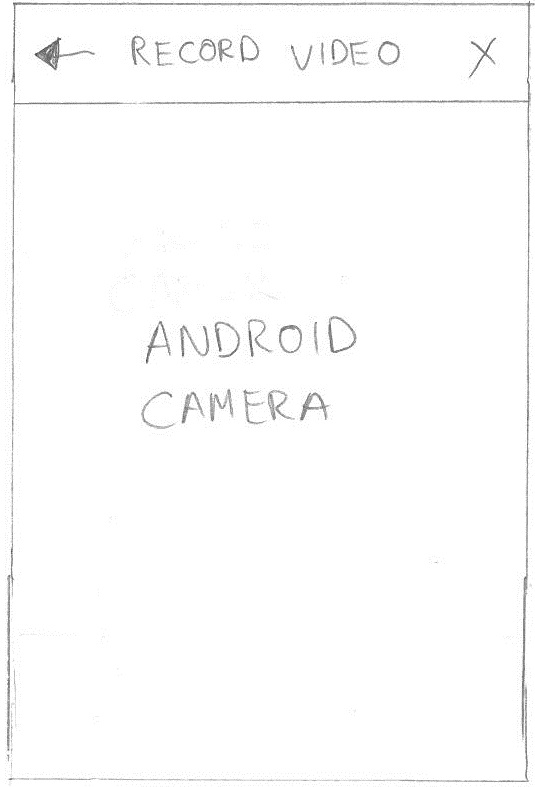 RECORD VIDEO X
ANDROID
CAMERA